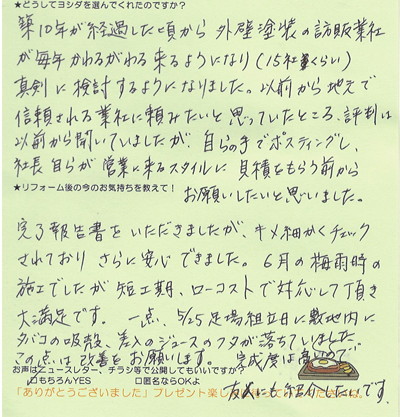 ★どうしてヨシダを選んでくれたのですか？
築10年が経過した頃から外壁塗装の訪販業社
が毎年かわるがわる来るようになり(15社くらい)
真剣に検討するようになりました。以前から地元で
信頼される業社に頼みたいと思っていたところ、評判は
以前から聞いていましたが、自らの手でポスティングし、
社長自らが営業に来るスタイルに見積をもらう前から
お願いしたいと思いました。
★リフォーム後の今のお気持ちを教えて！
完了報告書をいただきましたが、キメ細かくチェック
されておりさらに安心できました。6月の梅雨時の
施工でしたが短工期、ローコストで対応して頂き
大満足です。一点、5/25足場組立日に敷地内に
タバコの吸殻、差入のジュースのフタが落ちていました。
この点は改善をお願いします。完成度は高いので
お声はニュースレター、チラシ等で公開してもいいですか？
友人にも紹介したいです。
□もちろんYES □匿名ならOKよ
「ありがとうございました」プレゼント楽し